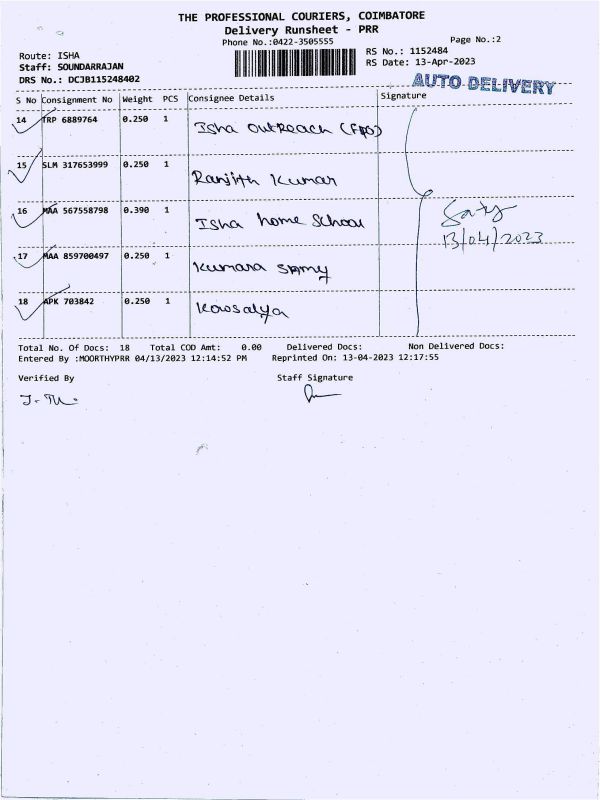 THE PROFESSIONAL COURIERS, COIMBATORE
Delivery Runsheet - PRR
Phone No.:0422-3505555
Page No.:2
Route: ISHA
RS No.: 1152484
Staff: SOUNDARRAJAN
RS Date: 13-Apr-2023
DRS No.: DCJB115248402
AUTO DELIVERY
S No Consignment No Weight PCS Consignee Details Signature
14 TRP 6889764 0.250 1 Isha Outreach (FPO)
15 SLM 317653999 0.250 1 Ranjith Kumar
16 MAA 567558798 0.390 1 Isha home School
13/04/2023
17 MAA 859700497 0.250 1 Kumara Samy
18 APK 703842 0.250 1 Kowsalya
Total No. Of Docs: 18 Total COD Amt: 0.00 Delivered Docs: Non Delivered Docs:
Entered By :MOORTHYPRR 04/13/2023 12:14:52 PM Reprinted On: 13-04-2023 12:17:55
Verified By Staff Signature